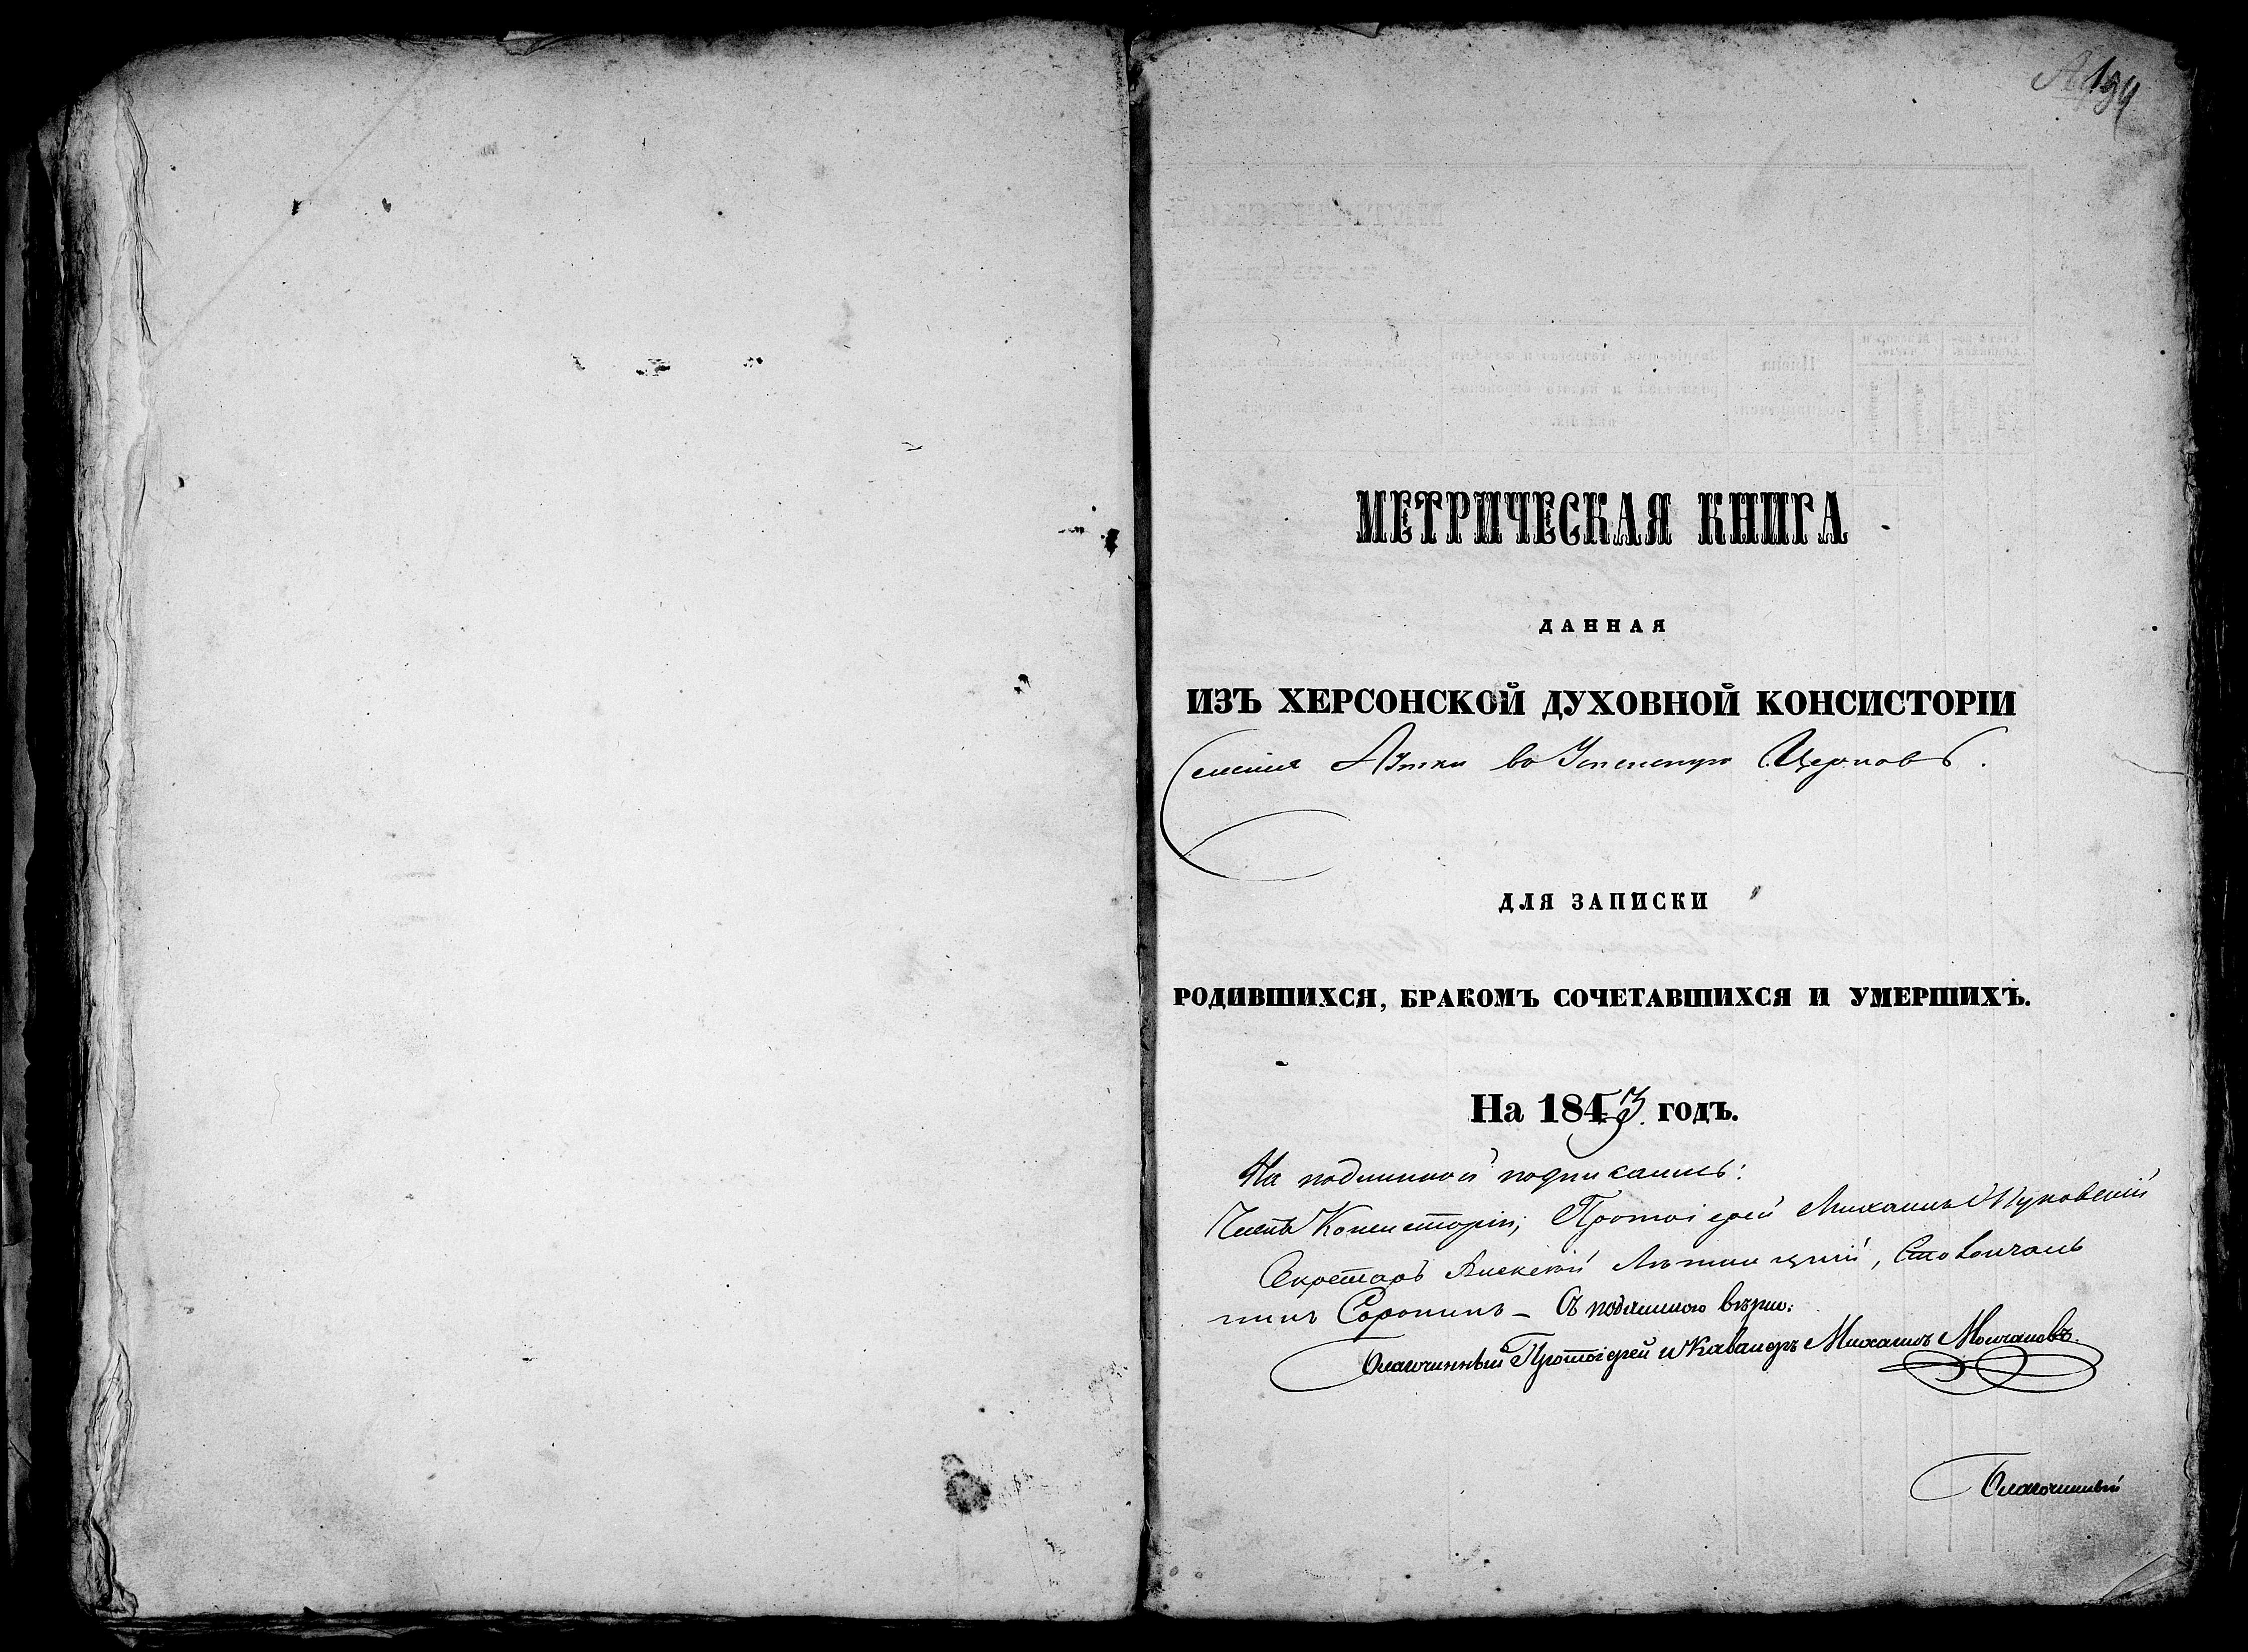 194
МЕТРИЧЕСКАЯ КНИГА
ДАННАЯ
ИЗЪ ХЕРСОНСКОЙ ДУХОВНОЙ КОНСИСТОРІИ
Селенія Аутки во Успенскую Церковь.
ДЛЯ ЗАПИСКИ
РОДИВШИХСЯ, БРАКОМЪ СОЧЕТАВШИХСЯ И УМЕРШИХЪ.
На 1843. годъ.
На подлинной подписали:
Членъ Консисторіи, Протоіерей Михаилъ
Секретарь Алексѣй, Столоначаль
никъ Сорокинъ – Съ подлинною вѣрно:
Благочинный Протоіерей и Кавалеръ Михаилъ Молчановъ.
Благочинный